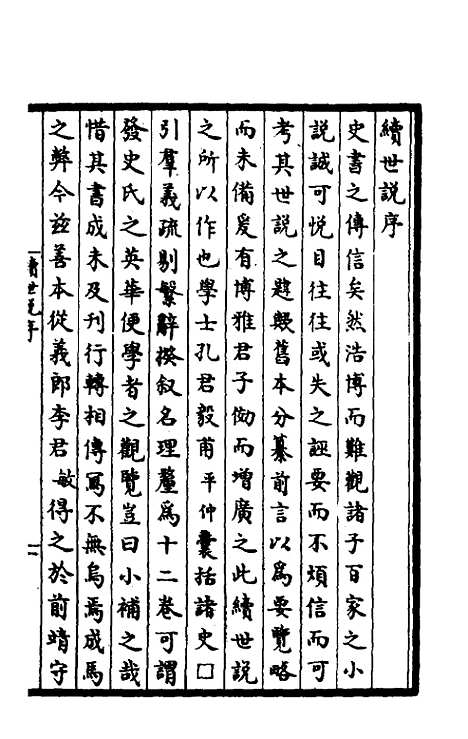 續世說序
史書之傳信矣然浩博而難觀諸子百家之小
說誠可悅目往往或失之誣要而不煩信而可
考其世說之題歟舊本分纂前言以為要覽略
而未備爰有博雅君子伷而增廣之此續世說
之所以作也學士孔君毅甫平仲囊括諸史□
引羣義疏剔繁辭揆叙名理釐為十二卷可謂
發史氏之英華便學者之觀覽豈曰小補之哉
惜其書成未及刊行轉相傳寫不無烏焉成馬
之弊今茲善本從義郎李君敏得之於前靖守
續世說序
一